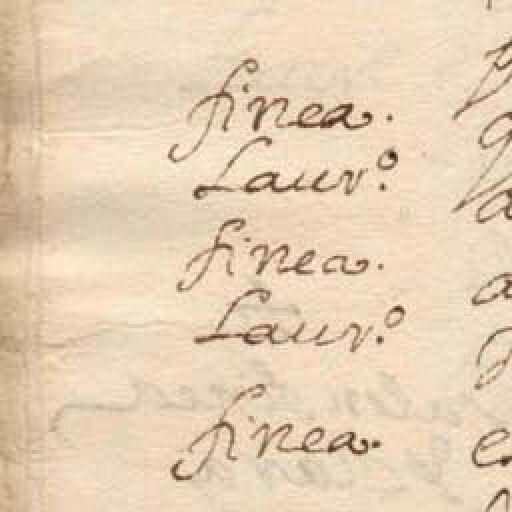 finea.
Laur.º
finea.
Laur.º
finea.